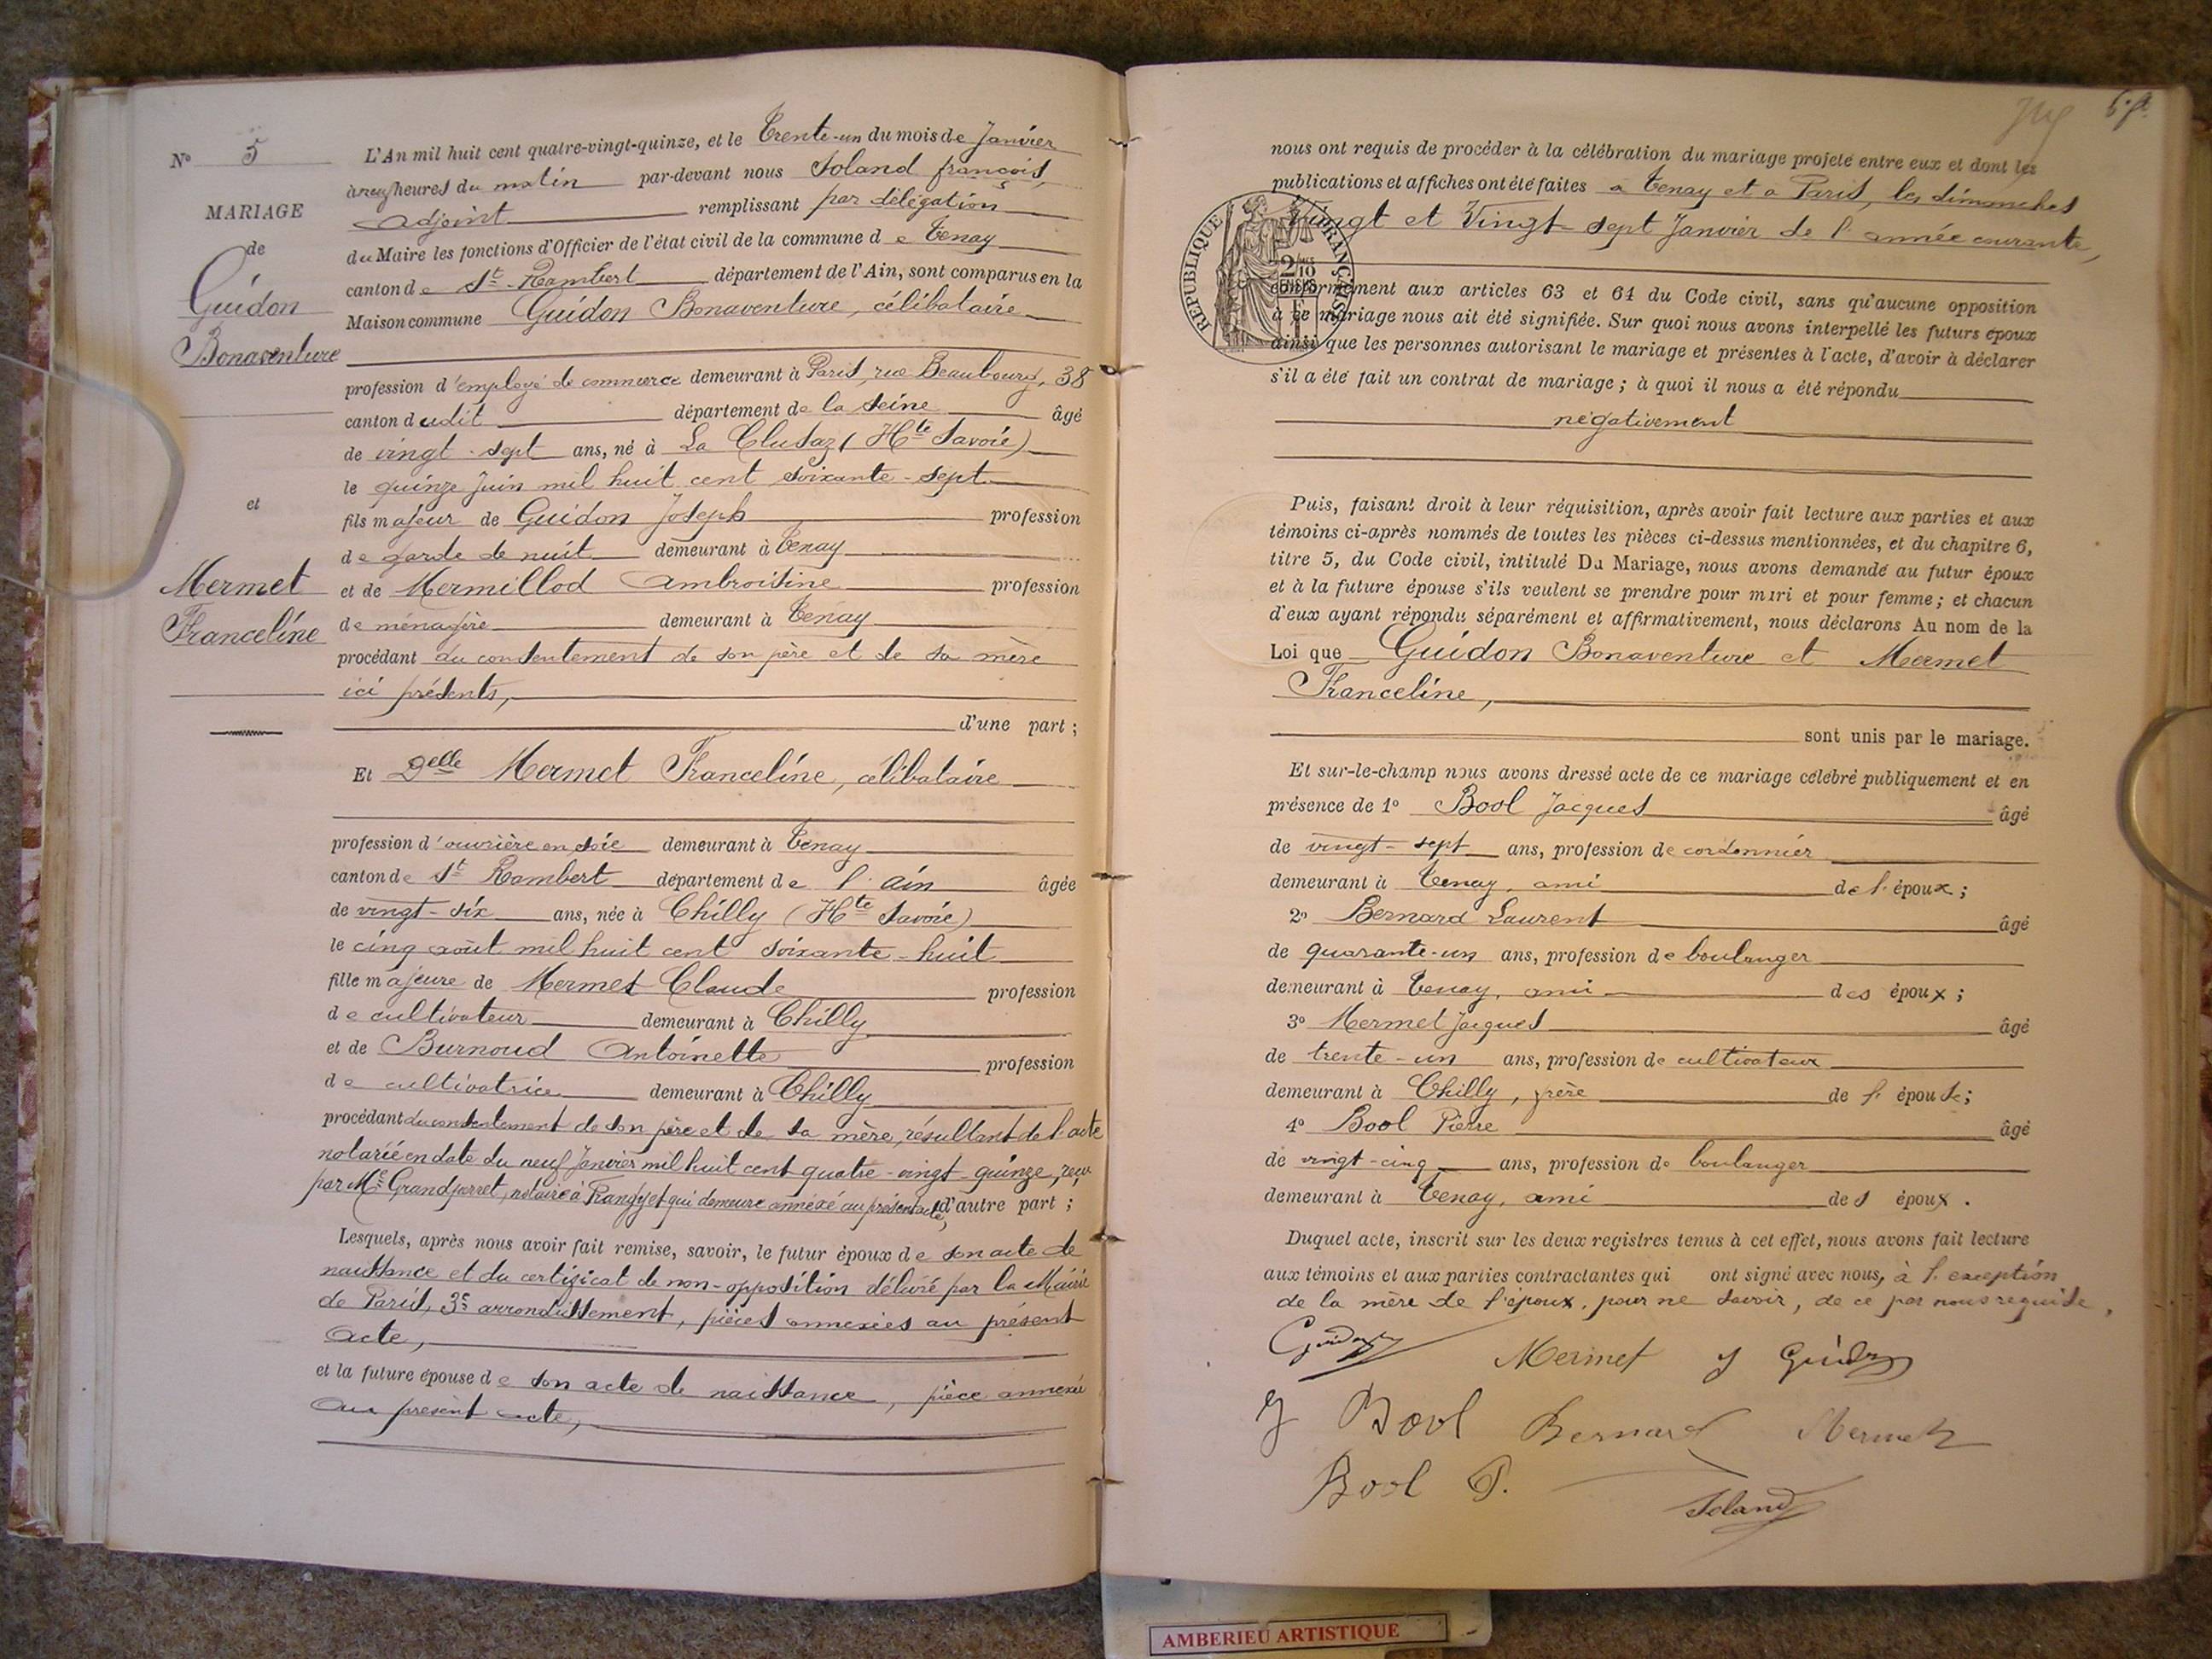 N° 5
MARIAGE
de
Guidon
Bonaventure
et
Mermet
Franceline
L'An mil huit cent quatre-vingt-quinze, et le Trente-un du mois de Janvier
à neuf heures du matin par-devant nous Soland françois,
adjoint remplissant par délégation
du Maire les fonctions d'Officier de l'état civil de la commune de Tenay
canton de St. Rambert département de l'Ain, sont comparus en la
Maison commune Guidon Bonaventure, célibataire
profession d'employé de commerce demeurant à Paris, rue Beaubourg, 38
canton dudit département de la Seine âgé
de vingt-sept ans, né à La Clusaz (Hte Savoie)
le quinze Juin mil huit cent soixante-sept
fils majeur de Guidon Joseph profession
de garde de nuit demeurant à Tenay
et de Mermillod Ambroisine profession
de ménagère demeurant à Tenay
procédant du consentement de son père et de sa mère
ici présents,
d'une part ;
Et Delle Mermet Franceline, célibataire
profession d'ouvrière en soie demeurant à Tenay
canton de St Rambert département de l'ain âgée
de vingt-six ans, née à Chilly (Hte Savoie)
le cinq août mil huit cent soixante-huit
fille majeure de Mermet Claude profession
de cultivateur demeurant à Chilly
et de Burnoud Antoinette profession
de cultivatrice demeurant à Chilly
procédant du consentement de son père et de sa mère, résultant de l'acte
notarié en date du neuf Janvier mil huit cent quatre-vingt-quinze, reçu
par Me Grandperret, notaire à Frangy et qui demeure annexé au présent acte, d'autre part ;
Lesquels, après nous avoir fait remise, savoir, le futur époux de son acte de
naissance et du certificat de non-opposition délivré par la Mairie
de Paris, 3e arrondissement, pièces annexées au présent
acte,
et la future épouse de son acte de naissance, pièce annexée
au présent acte,
nous ont requis de procéder à la célébration du mariage projeté entre eux et dont les
publications et affiches ont été faites à Tenay et à Paris, les dimanches
Vingt et Vingt-sept Janvier de l'année courante,
RÉPUBLIQUE FRANÇAISE
2/10
conformément aux articles 63 et 64 du Code civil, sans qu'aucune opposition
à ce mariage nous ait été signifiée. Sur quoi nous avons interpellé les futurs époux
ainsi que les personnes autorisant le mariage et présentes à l'acte, d'avoir à déclarer
s'il a été fait un contrat de mariage ; à quoi il nous a été répondu
négativement
Puis, faisant droit à leur réquisition, après avoir fait lecture aux parties et aux
témoins ci-après nommés de toutes les pièces ci-dessus mentionnées, et du chapitre 6,
titre 5, du Code civil, intitulé Du Mariage, nous avons demandé au futur époux
et à la future épouse s'ils veulent se prendre pour mari et pour femme ; et chacun
d'eux ayant répondu séparément et affirmativement, nous déclarons Au nom de la
Loi que Guidon Bonaventure et Mermet
Franceline,
sont unis par le mariage.
Et sur-le-champ nous avons dressé acte de ce mariage célébré publiquement et en
présence de 1° Bool Jacques âgé
de vingt-sept ans, profession de cordonnier
demeurant à Tenay, ami de l'époux ;
2° Bernard Laurent âgé
de quarante-un ans, profession de boulanger
demeurant à Tenay, ami des époux ;
3° Mermet Jacques âgé
de trente-un ans, profession de cultivateur
demeurant à Chilly, frère de l'épouse ;
4° Bool Pierre âgé
de vingt-cinq ans, profession de boulanger
demeurant à Tenay, ami des époux.
Duquel acte, inscrit sur les deux registres tenus à cet effet, nous avons fait lecture
aux témoins et aux parties contractantes qui ont signé avec nous, à l'exception
de la mère de l'époux, pour ne savoir, de ce par nous requise.
Guidon Mermet J Guidon
J Bool Bernard Mermet
Bool P. Soland
AMBERIEU ARTISTIQUE